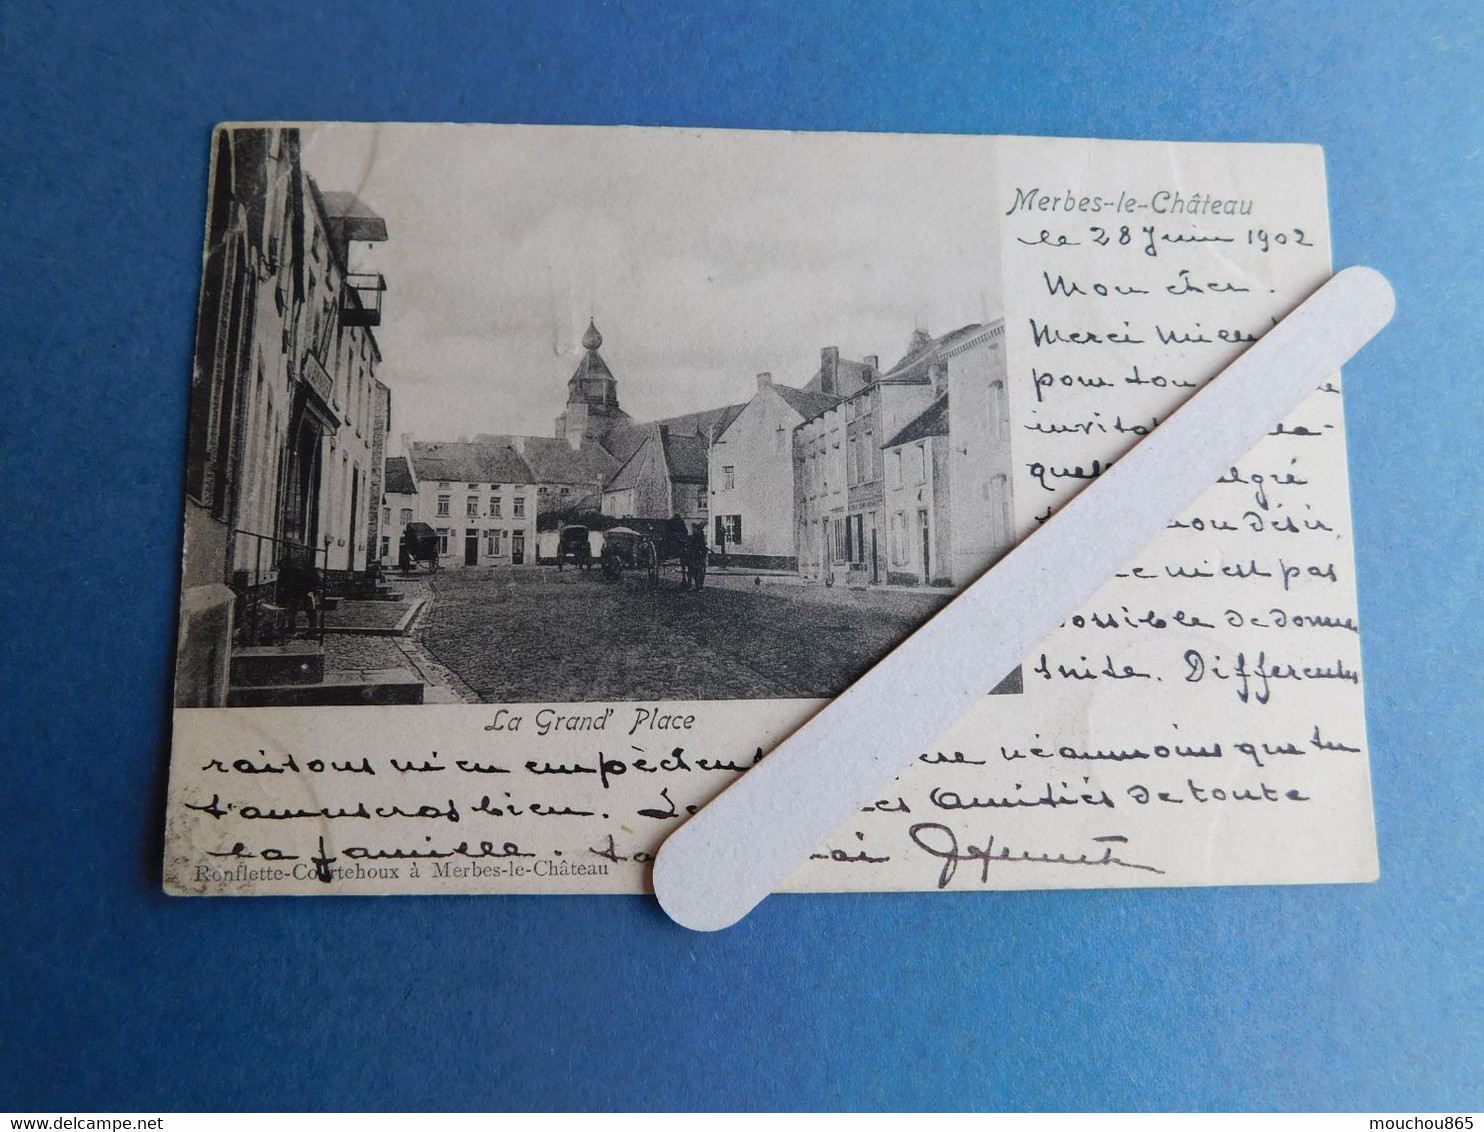 Merbes-le-Château
le 28 Juin 1902
Mon cher.
Merci mille
pour ton
invitat la-
quel lgré
mon désir,
n'est pas
possible de donner
suite. Differentes
La Grand' Place
raisons m'en empêchent néanmoins que tu
t'amuseras bien. Les Amitiés de toute
la famille.
Ronflette-Courtehoux à Merbes-le-Château
mouchou865